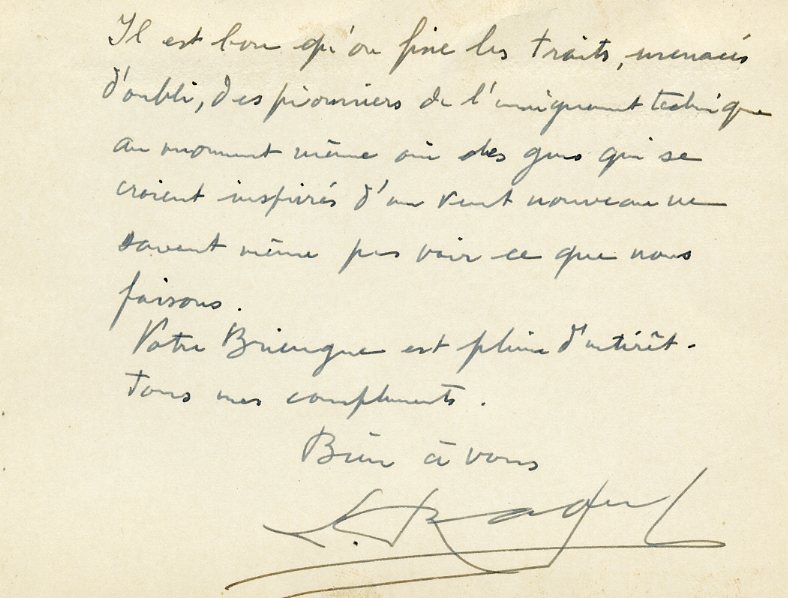 Il est bon qu'on fixe les traits, menacés
d'oubli, des pionniers de l'enseignement technique
au moment même où des gens qui se
croient inspirés d'un vent nouveau ne
savent même pas voir ce que nous
faisons.
Votre Briengne est pleine d'intérêt.
Tous mes compliments.
Bien à vous